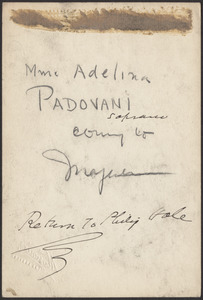 Mme Adelina
PADOVANI
soprano
coming to
Return to Philip Hale